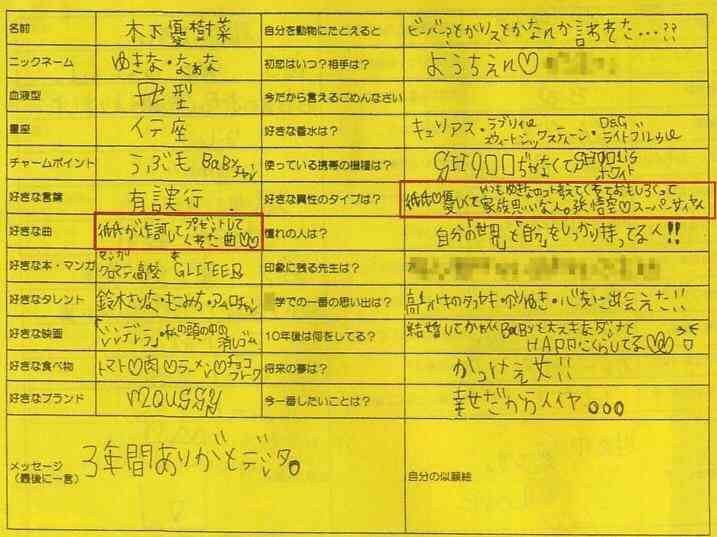 名前 木下優樹菜
自分を動物にたとえると ビーバー?とかリスとかなんか言われそた…??
ニックネーム ゆきな・なぁな
初恋はいつ?相手は? ようちえん♡
血液型 型
今だから言えるごめんなさい
星座 イテ座
好きな香水は? キュリアス・ラブリイル
スウィートシックスティーン・D&G
ライトブルゥル
チャームポイント うぶ毛 BaBy
使っている携帯の機種は? SH900iじゃなくてSH901iS
ホワイト
好きな言葉 有誤行
好きな異性のタイプは? いつもゆきなのコト考えてくれておもしろくって
優しくて家族思いな人。孫悟空♡スーパーサイヤ人
好きな曲 が作詞してプレゼントして
くれた曲♡♡
憧れの人は? 自分の「世界」と「自分」をしっかり持ってる人!!
好きな本・マンガ マンガ クロマティ高校 本 GLITEER
印象に残る先生は?
好きなタレント 鈴木さな・もこみち・アムロチャン
学での一番の思い出は? に出会えた!!
好きな映画 「シンデレラ」・「私の頭の中の
消しゴム」
10年後は何をしてる? 結婚してかわいBaByと大スキなダンナと
HAPPIくらしてる♡♡
好きな食べ物 トマト♡肉♡ラーメン♡チョコ
フレーク
将来の夢は? かっけえ女!!
好きなブランド moussy
今一番したいことは? 幸せだからイイヤ。。。
メッセージ
(最後に一言) 3年間ありがとデシタ。
自分の似顔絵